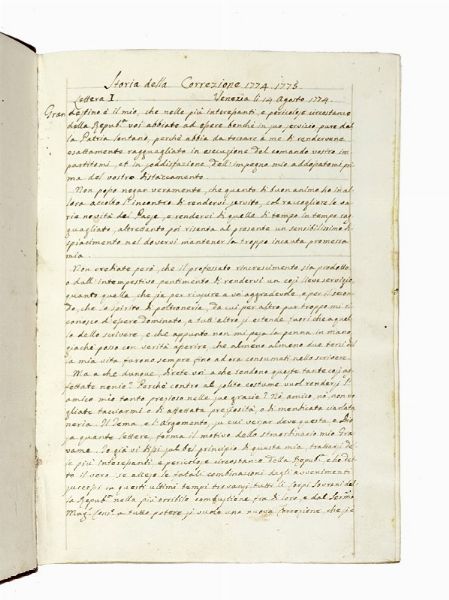 Storia della Correzione 1774. 1775.
Lettera I. Venezia li 14 Agosto 1774.
Gran destino è il mio, che nelle più interessanti, e pericolose circostanze
della Repub.ª voi abbiate ad essere benchè in suo servizio pure dal
la Patria lontano, perchè abbia da toccare à me di rendervene
esattamente ragguagliato in esecuzione del comando vostro im
partitomi, et in soddisfazione dell'impegno mio addossatomi pri
ma del vostro distaccamento.
Non posso negar veramente, che quanto di buon animo hò in al
lora accolto l'incontro di rendervi servito, col raccogliere le va
rie novità del Paese, e rendervi di quelle di tempo in tempo rag
guagliato, altrettanto poi risenta al presente un sensibilissimo di
spiacimento nel dovervi mantener la troppo incauta promessa
mia.
Non crediate però, che il professato rincrescimento sia prodotto
o dall'intempestivo pentimento di rendervi un così lieve servigio
quanto quello, che sia per riuscire a voi aggradevole, e per il secon
do, che lo spirito di poltroneria, da cui per altro pur troppo mi co
nosco d'essere dominato, a tutt'altro si estende fuori che a quel
lo dello scrivere, e che appunto non mi pesa la penna in mano,
giacchè posso con verità asserire, che almeno almeno due terzi del
la mia vita furono sempre fino ad ora consumati nello scrivere.
Ma a che dunque, direte voi a che tendono queste tante così af
fettate nenie? Perchè contro al solito costume vuol rendersi l'
amico mio tanto prezioso nelle sue grazie? Nò amico, nò, non vo
gliate tacciarmi o di affettata preziosità, o di mendicata ciarlata
neria. Il Tema, e l'Argomento, su cui versar deve questa, e
quante lettere, forma il motivo dello straordinario mio Gra
vame. Io già vi dissi sul bel principio di questa mia, trattarsi del
le più interessanti, e pericolose circostanze della Repub.ª, ed
il vero, se attese le fatali combinazioni degli avvenimenti
successi in questi ultimi tempi trovansi tutti li Corpi Sovrani del
la Repub.ª nella più orribile combustione fra di loro, e dal Ser.mo
Mag.r Cons.º a tutto potere si vuole una nuova Correzione, che se